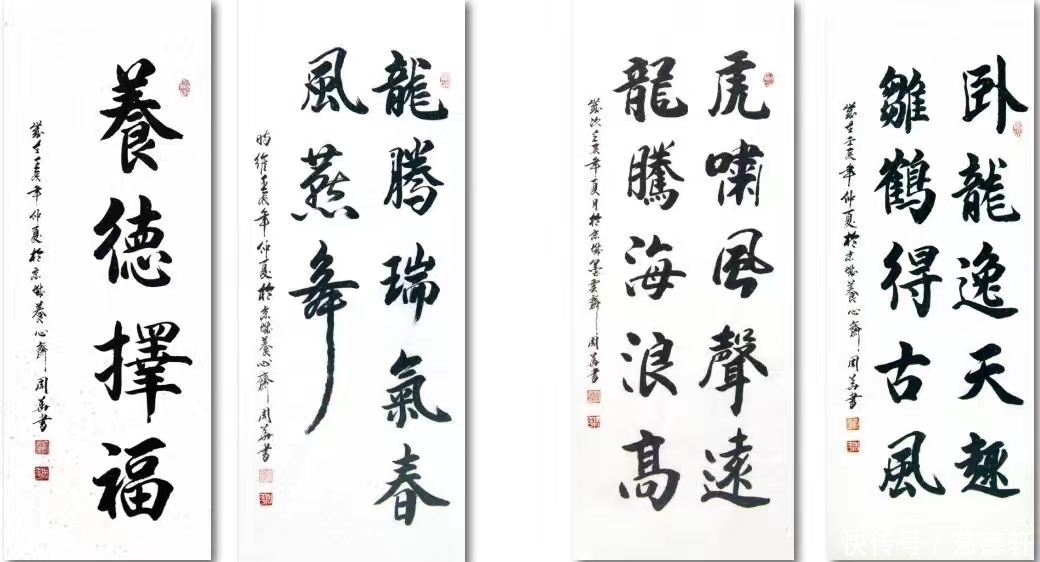 養德擇福
歲在壬辰年仲夏於京城養心齋 周書
龍騰瑞氣春
風燕舞
時維壬辰年仲夏於京城養心齋 周書
虎嘯風聲遠
龍騰海浪高
歲次壬辰年夏月於京城墨雲齋 周書
卧龍逸天趣
雛鶴得古風
歲在壬辰年仲夏於京城養心齋 周書
快传号 / 艺德轩